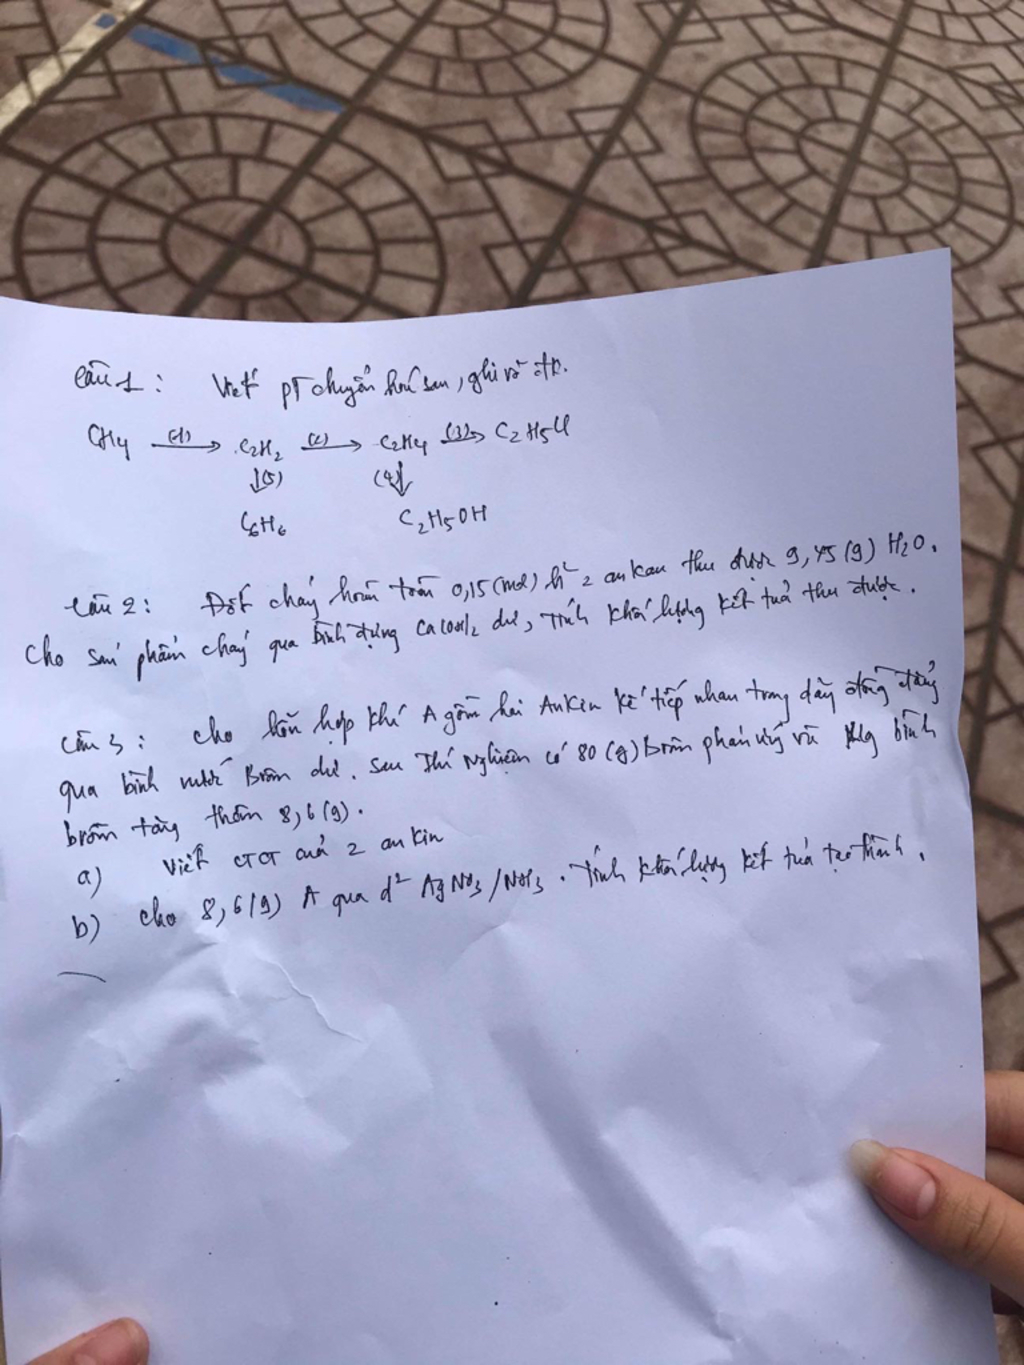 Câu 1: Viết PT chuyển hoá sau, ghi rõ đk.
CH4 (1) C2H2 (2) C2H4 (3) C2H5Cl
(5) (4)
C6H6 C2H5OH
Câu 2: Đốt cháy hoàn toàn 0,15 (mol) h² 2 ankan thu được 9,45 (g) H2O.
Cho sản phẩm cháy qua bình đựng Ca(OH)2 dư, Tính khối lượng kết tủa thu được.
Câu 3: Cho hỗn hợp khí A gồm hai Ankin kế tiếp nhau trong dãy đồng đẳng
qua bình nước Brom dư. Sau Thí nghiệm có 80 (g) Brôm phản ứng và klg bình
brôm tăng thêm 8,6 (g).
a) Viết CTCT của 2 ankin
b) Cho 8,6 (g) A qua d² AgNO3/NH3. Tính khối lượng kết tủa tạo thành.